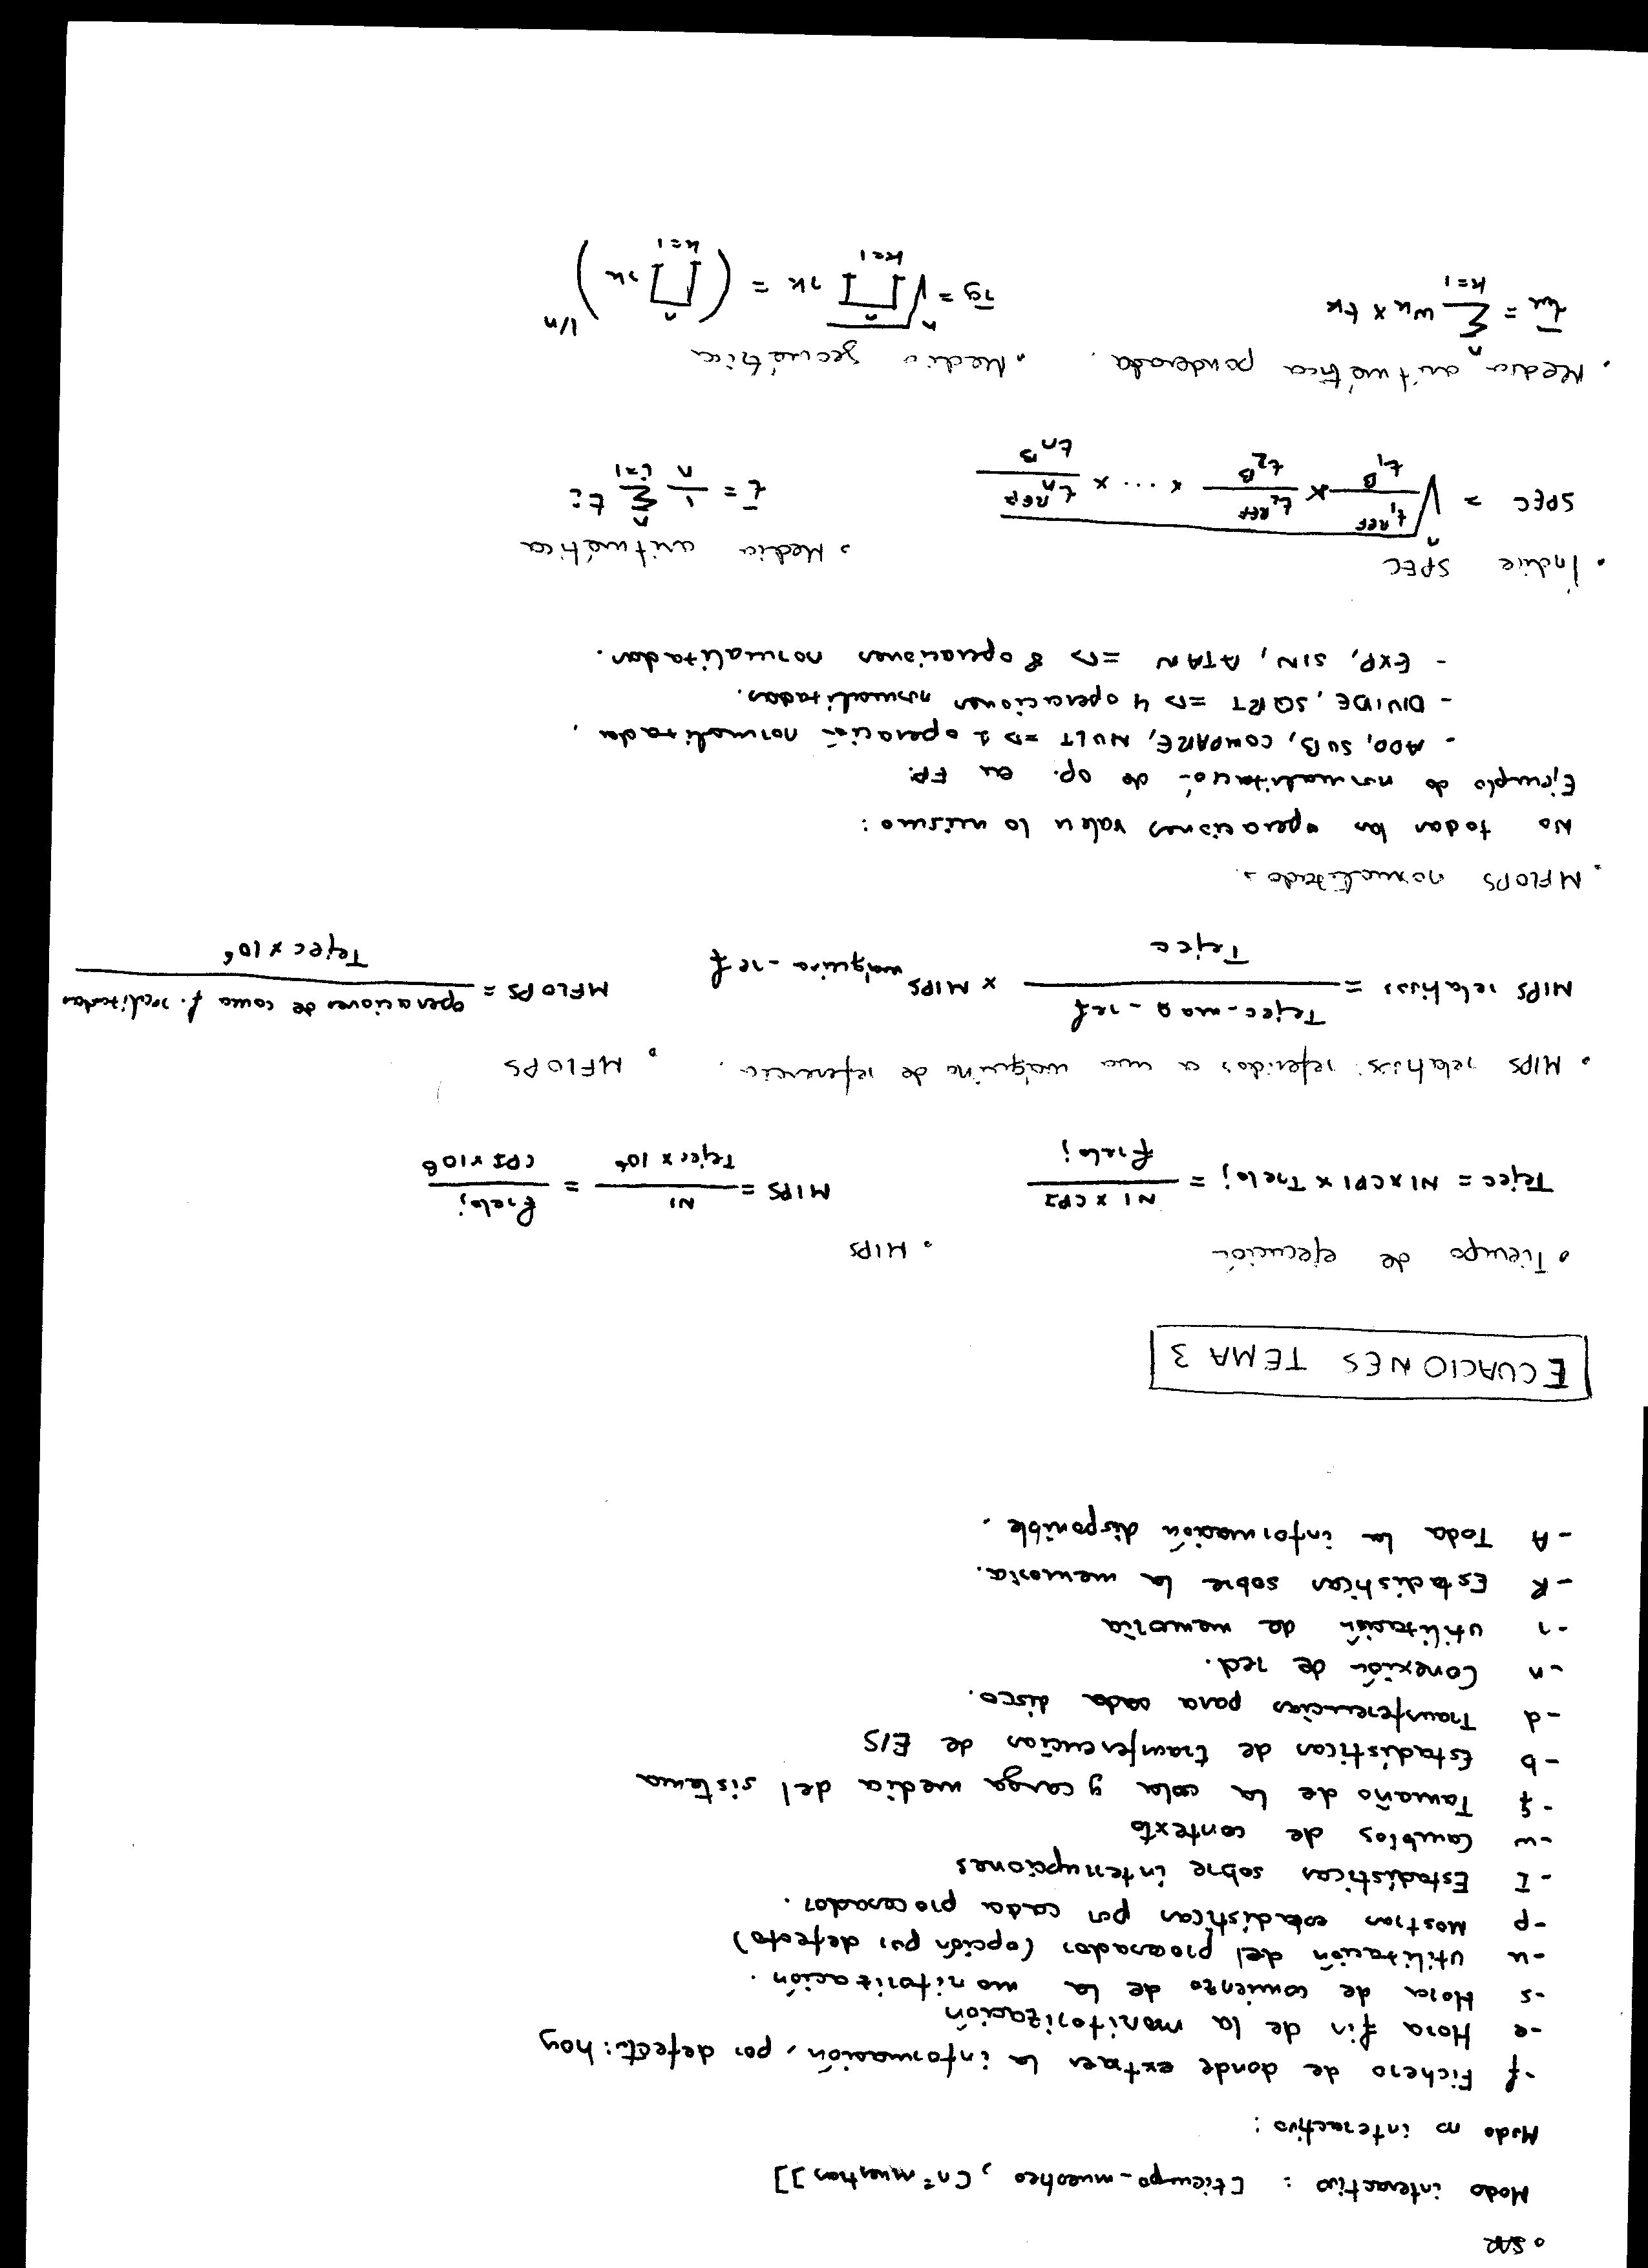 • SAR
Modo interactivo : [tiempo_muestreo , [nº muestras]]
Modo no interactivo :
-f Fichero de donde extraer la información, por defecto: hoy
-e Hora fin de la monitorización
-s Hora de comienzo de la monitorización.
-u Utilización del procesador (opción por defecto)
-p Mostrar estadísticas por cada procesador.
-I Estadísticas sobre interrupciones
-w Cambios de contexto
-q Tamaño de la cola y carga media del sistema
-b Estadísticas de transferencias de E/S
-d Transferencias para cada disco.
-n Conexión de red.
-r utilización de memoria
-R Estadísticas sobre la memoria.
-A Toda la información disponible.
ECUACIONES TEMA 3
• Tiempo de ejecución
Tejec = NI x CPI x Treloj = NI x CPI / freloj
• MIPS
MIPS = NI / Tejec x 10^6 = freloj / CPI x 10^6
• MIPS relativos: referidos a una máquina de referencia.
MIPS relativos = Tejec_maq_ref / Tejec x MIPS máquina_ref
• MFLOPS
MFLOPS = operaciones de coma f. realizadas / Tejec x 10^6
• MFLOPS normalizados.
No todas las operaciones valen lo mismo:
Ejemplo de normalización de op. en FP:
- ADD, SUB, COMPARE, MULT => 1 operación normalizada.
- DIVIDE, SQRT => 4 operaciones normalizadas.
- EXP, SIN, ATAN => 8 operaciones normalizadas.
• Índice SPEC
SPEC = ⁿ√(t₁^REF / t₁^B x t₂^REF / t₂^B x ... x tₙ^REF / tₙ^B)
• Media aritmética
t̄ = 1/n Σ_{i=1}^{n} tᵢ
• Media aritmética ponderada.
t̄w = Σ_{k=1}^{n} wk x tk
• Media geométrica
r̄g = ⁿ√(Π_{k=1}^{n} rk) = (Π_{k=1}^{n} rk)^{1/n}